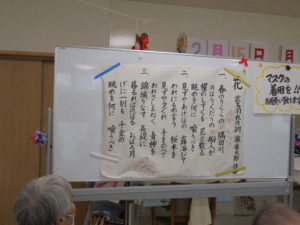 2月15日 月
マスクの
着用を!!
お願い致します
花 武島羽衣作詞 滝廉太郎作曲
一、春のうららの 隅田川
のぼりくだりの 船人が
櫂のしずくも 花と散る
眺めを何に 喩うべき
二、見ずやあけぼの 露浴びて
われにもの言う 桜木を
見ずや夕ぐれ 手をのべて
われさしまねく 青柳を
三、錦織りなす 長堤に
暮るればのぼる おぼろ月
げに一刻も 千金の
眺めを何に 喩うべき